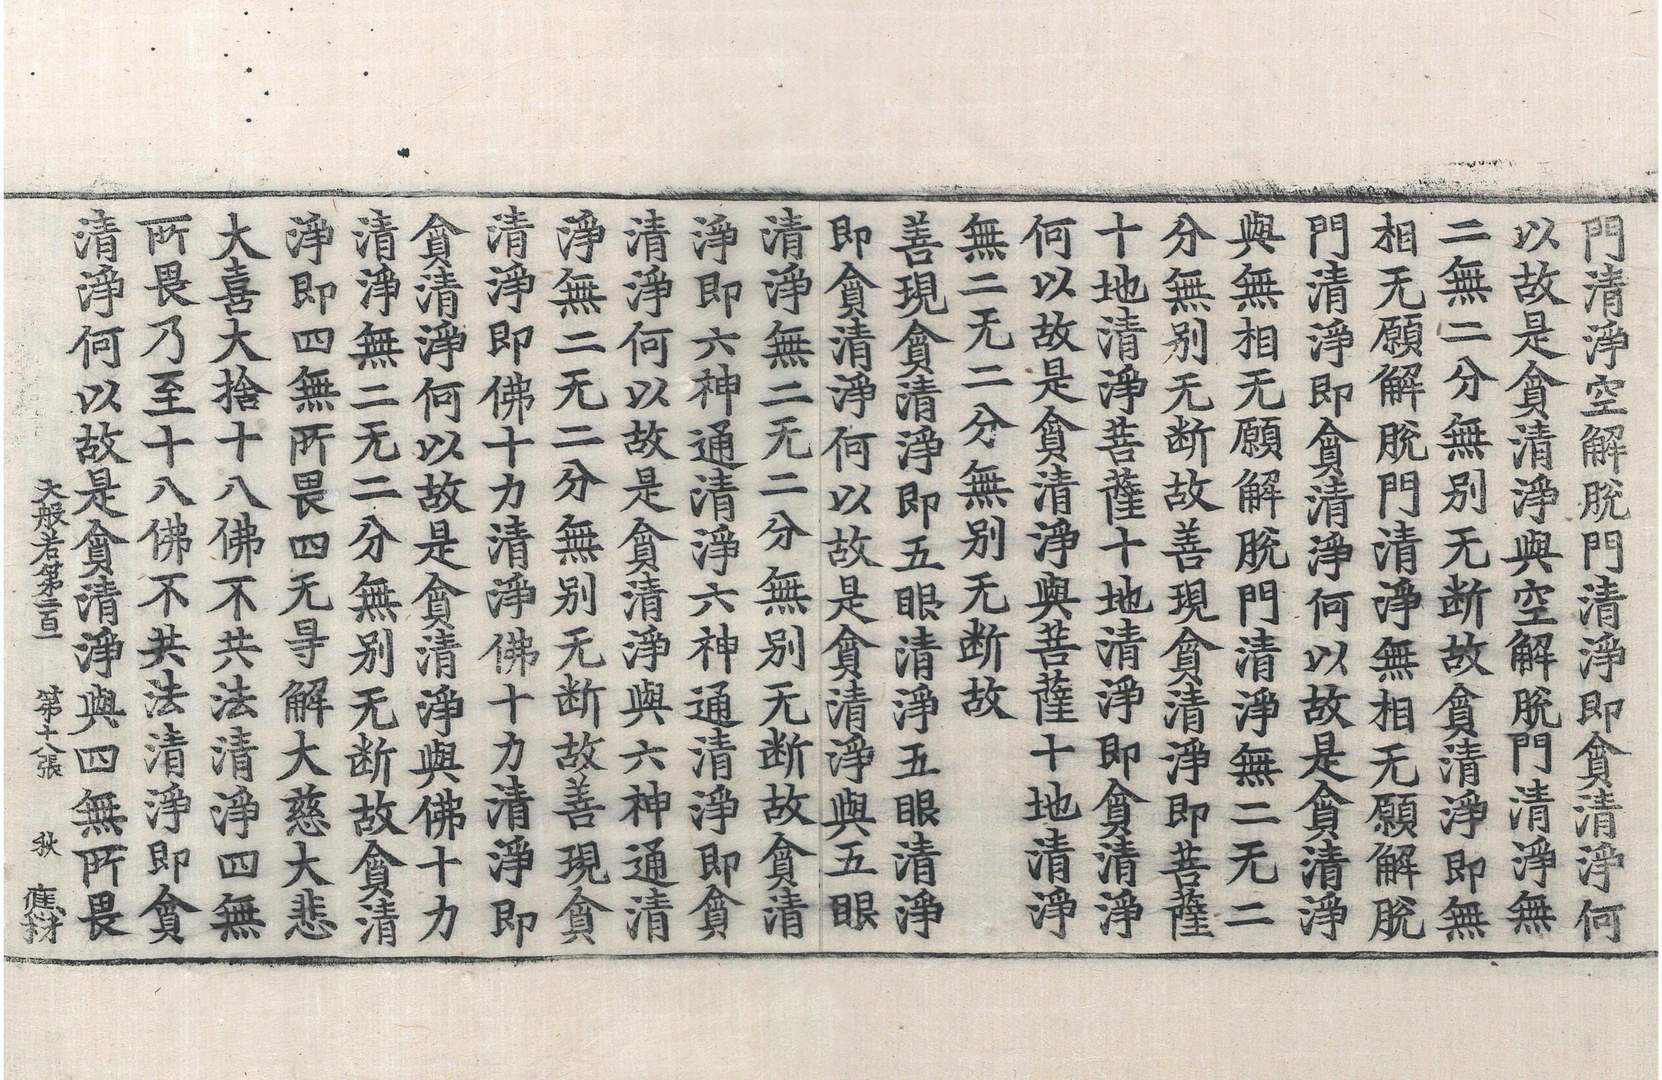 門清淨空解脫門清淨即貪清淨何
以故是貪清淨與空解脫門清淨無
二無二分無別无断故貪清淨即無
相无願解脫門清淨無相无願解脫
門清淨即貪清淨何以故是貪清淨
與無相无願解脫門清淨無二无二
分無別无断故善現貪清淨即菩薩
十地清淨菩薩十地清淨即貪清淨
何以故是貪清淨與菩薩十地清淨
無二无二分無別无断故
善現貪清淨即五眼清淨五眼清淨
即貪清淨何以故是貪清淨與五眼
清淨無二无二分無別无断故貪清
淨即六神通清淨六神通清淨即貪
清淨何以故是貪清淨與六神通清
淨無二无二分無別无断故善現貪
清淨即佛十力清淨佛十力清淨即
貪清淨何以故是貪清淨與佛十力
清淨無二无二分無別无断故貪清
淨即四無所畏四无㝵解大慈大悲
大喜大捨十八佛不共法清淨四無
所畏乃至十八佛不共法清淨即貪
清淨何以故是貪清淨與四無所畏
大般若第二百一 第十八張 秋 應材